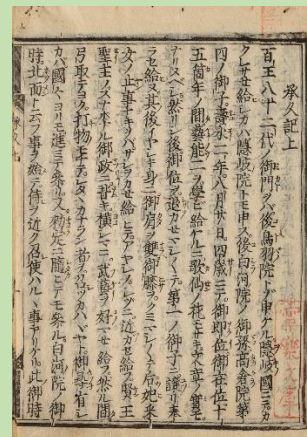 承久記上
百王八十二代ノ御門ヲハ後鳥羽院トゾ申ケル隠岐國ニテカ
クレサセ給シカハ隠岐院トモ申ス後白河院ノ御孫高倉院第
四ノ御子壽永二年八月廿日四歳ニテ御即位御在位十
五箇年ノ間藝能二ヲ學ヒ給ヘルニ歌仙ノ花モサキ文章ノ實モ
ナリヌヘシ然リシ後御位ヲ退カセマシ〳〵テ第一ノ御子ニ譲リ奉
ラセ給ヌ其後イヤシキ身ニ御肩ヲ雙御膝ヲクミマシ〳〵テ后妃采
女ノ止事ナキヲハサシヲカセ給ヒテアヤシノシツニ近カセ給フ賢王
聖主ノスナホル御政ニ背キ横シマニ武藝ヲ好マセ給フ然ル間
弓取テヨク打物モチテシタヽカナラン者ヲ召ツカハヽヤト御尋有シ
カハ國々ヨリモ進ミテ参リ又勅定ニ随ヒテモ参ル白河院ノ御
時北面ト云フ事ヲ始テ侍ヲ近ク召使ハルヽ事アリケリ此御時